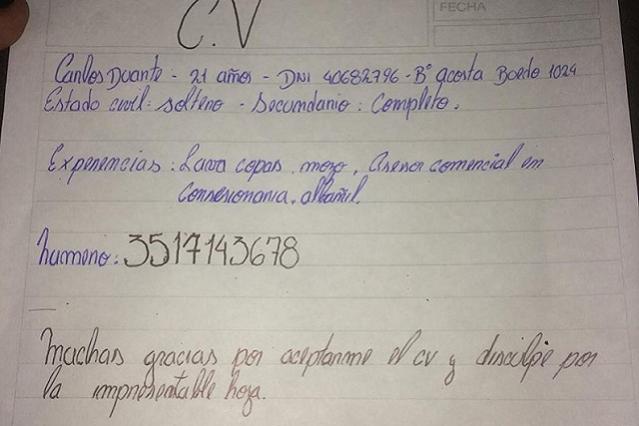 FECHA
C.V
Carlos Duarte - 21 años - DNI 40682796 - B° acosta Boedo 1024
Estado civil: soltero - Secundario: Completo.
Experiencias: Lava copas, mozo, Asesor comercial en
Consesionaria, albañil.
numero: 3517143678
muchas gracias por aceptarme el cv y disculpe por
la impresentable hoja.